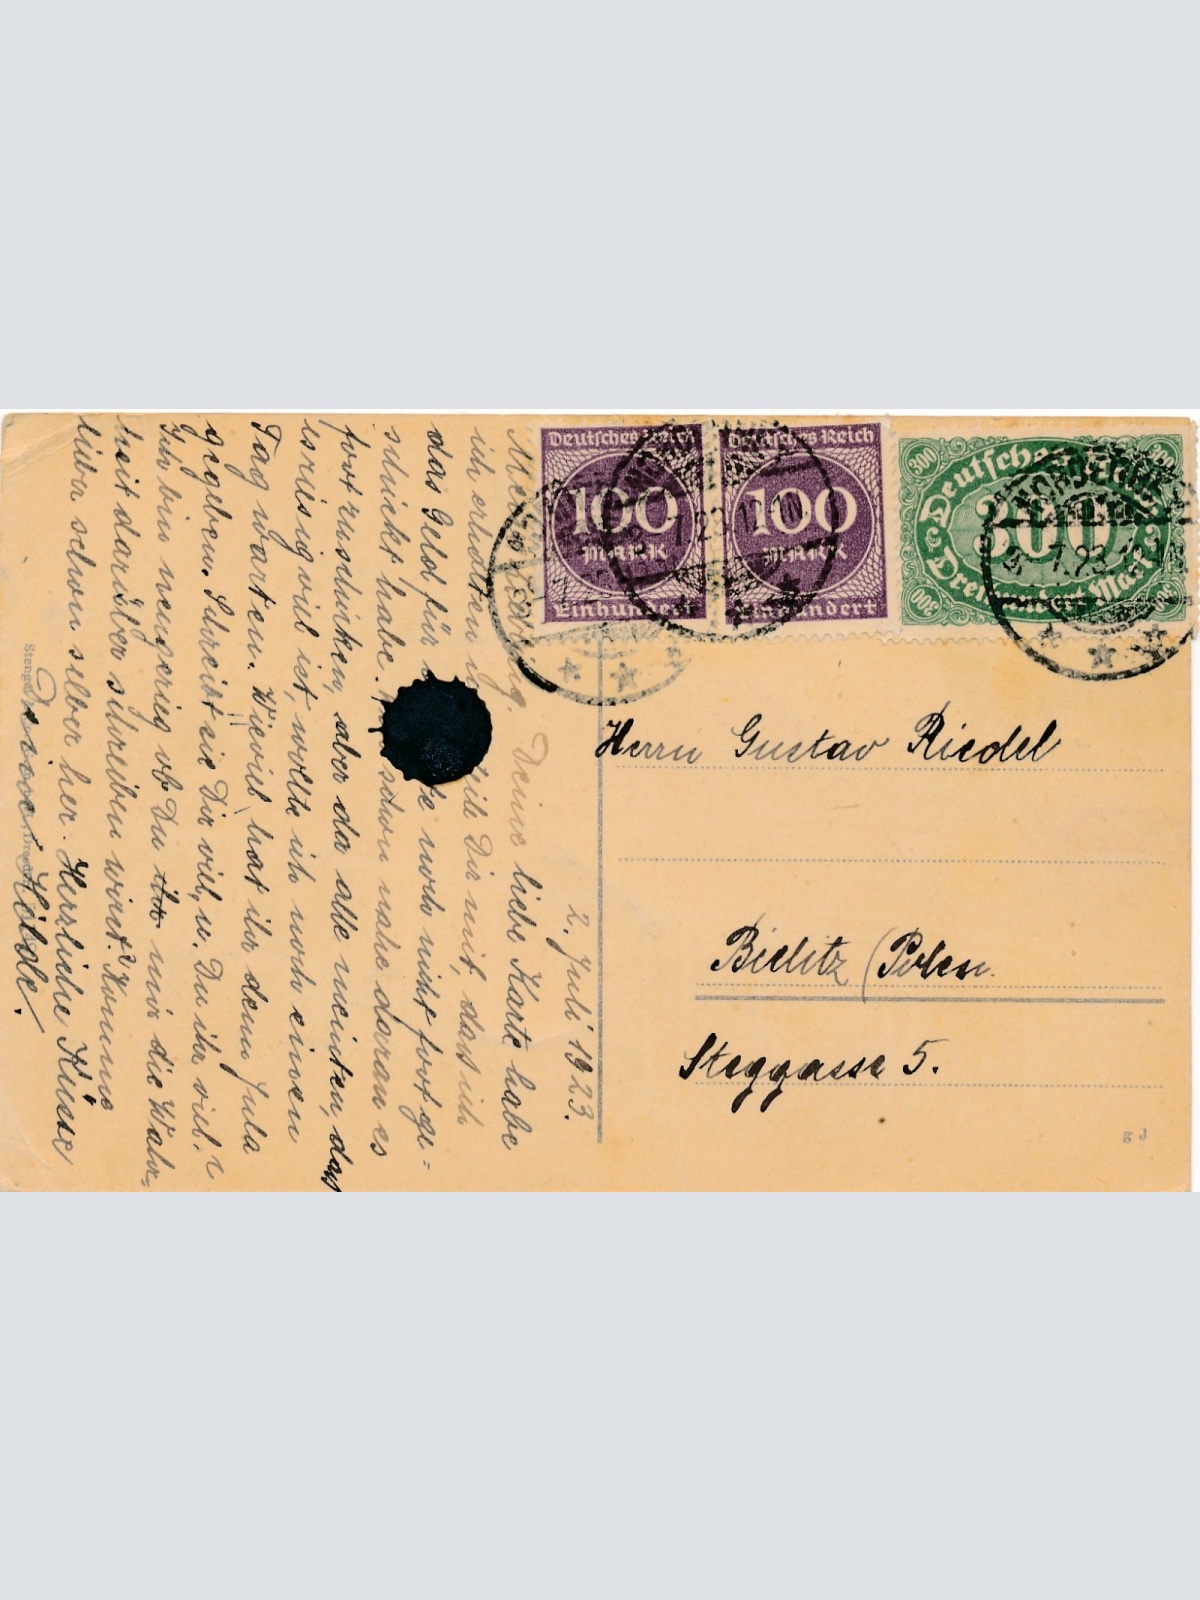 Deutsches Reich
100
MARK
Einhundert
Deutsches Reich
100
MARK
Einhundert
300
300
Deutsches Reich
300
Dreihundert Mark
300
Herrn Gustav Riedel
Bielitz (Polen
Steggasse 5.
2. Juli 1923.
Mein Deine liebe Karte habe
ich erhalten u. teile Dir mit, dass ich
das Geld für noch nicht fortge-
schickt habe. schon nahe daran es
fortzuschicken, aber da alle meinten, dass
es riesig viel ist, wollte ich noch einen
Tag warten. Wieviel hast ihr denn Jula
gegeben. Schreibt sie Dir viel, u. Du ihr viel?
Ich bin neugierig ob Du ihr mir die Wahr-
heit darüber schreiben wirst. Komme
lieber schon selber her. Herzliche Küsse
Deine Hilde.
Stengel